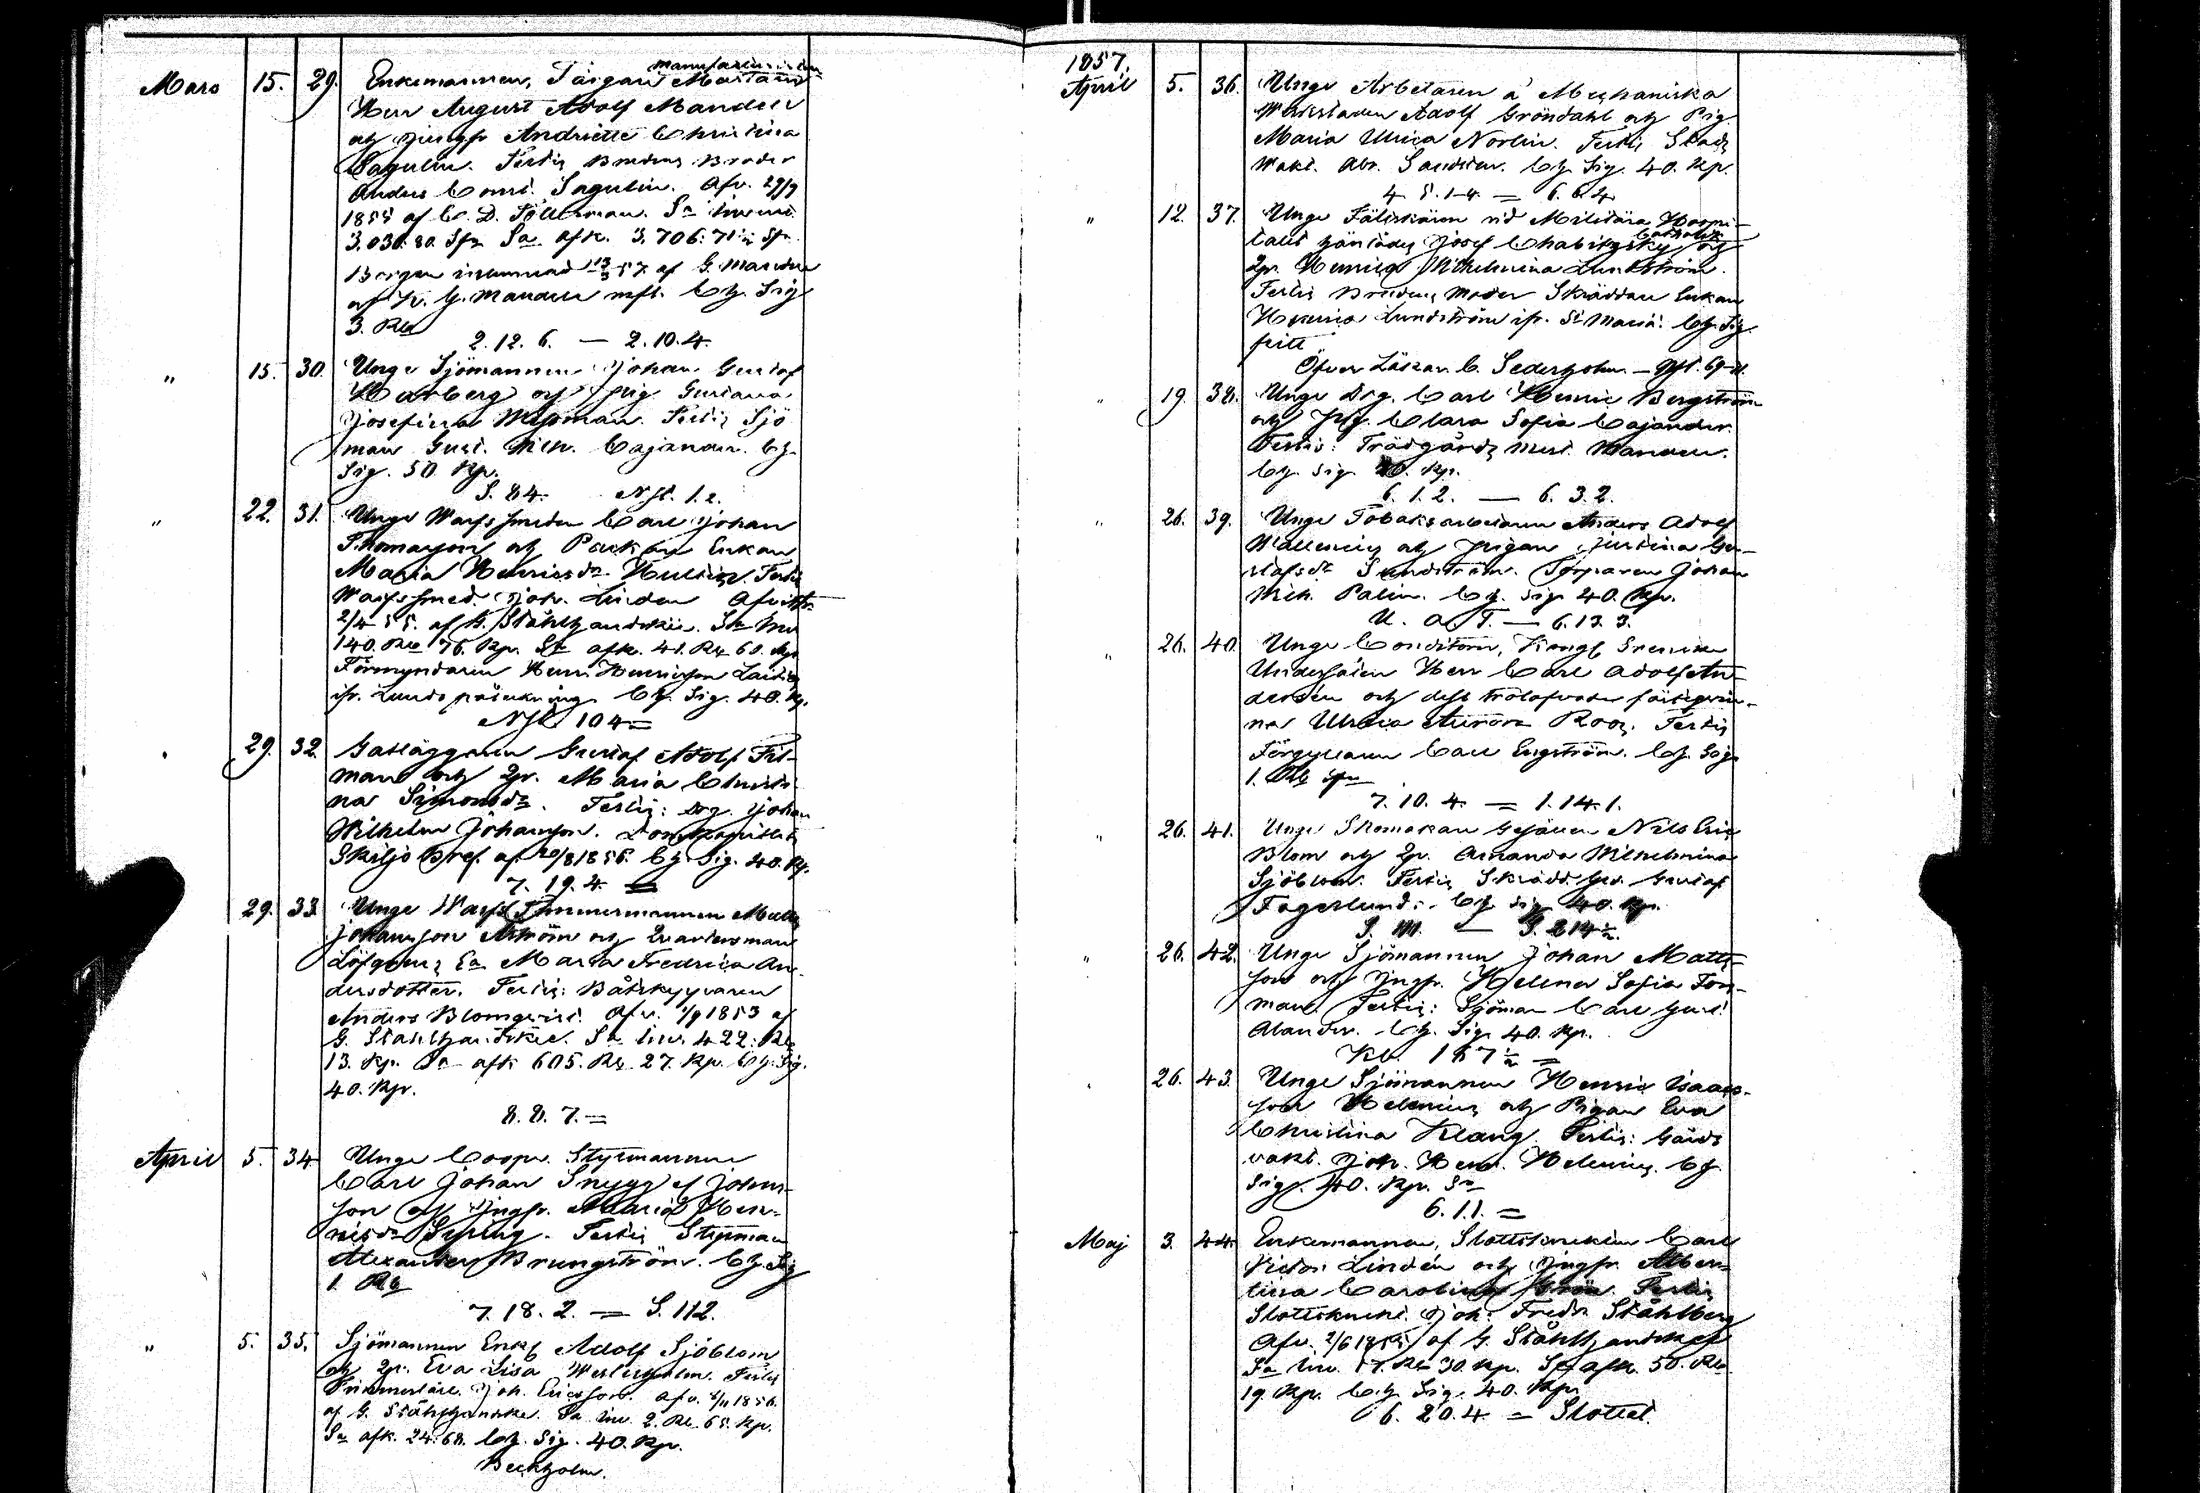 Mars 15. 29. Enkemannen, Färgaren
Herr August Adolf Mandell
och Jungfr Andriette Christina
Sagulin. Testis Brudens Broder
Anders Const. Sagulin. Afv. 29/9
1855 af C. D. Söderman. Sa inven.
3,030:80 Sr Sa afk. 3,706:71½ Sr
Borgen inlemnad 13/3 57. af G. Mandell
af K. G. Mandell mfl. Ch. Sig
3. Rb
2. 12. 6. — 2. 10. 4.
" 15. 30. Unge Sjömannen Johan Gustaf
Karberg och Pig. Gustava
Josefina Nyman. Testis Sjö
man Gust. Wilh. Cajander. Ch.
Sig. 50. Kp.
S. 84. NJl. 1.2.
" 22. 31. Unge Warfs smeden Carl Johan
Thomasson och Enkan
Maria Henricsdr Testis
Warfssmed. Joh. Linden Afvittr.
2/4 55. af G. Stålhandske. Sa inv
140. Rb 76. Kp. Sa afk. 41. Rb 60. Kp
Förmyndaren Henr. Henricsson
ifr. Lundo Ch. Sig. 40. Kp.
NJl 104 =
29. 32. Gustaf Adolf
man och Qpr. Maria Christi-
na Simonsdr. Testis: Drg. Johan
Wilhelm Johansson. Domkapitlets
Skiljobref af 20/8 1856. Ch. Sig. 40. Kp.
7. 19. 4. =
29. 33. Unge Warfs Timmermannen Matts
Johansson Åström och Quartersman
Löfgrens Ea Maria Fredrica An-
dersdotter. Testis: Båtskypparen
Anders Blomqvist. Afv. 1853 af
G. Stålhandske. Sa inv. 422. Rb
13. Kp. Sa afk 605. Rb. 27. Kp. Ch. Sig.
40. Kp.
8. 8. 7. =
April 5. 34. Unge Coop. Styrmannen
Carl Johan Snygg el Johans-
son och Jungfr. Maria Hen-
ricsdr Spring. Testis Styrman
Alexander Brungström. Ch. Sig
1. Rb
7. 18. 2. = S. 112.
" 5. 35. Sjömannen Enkl Adolf Sjöblom
och Qpr. Eva Lisa Westerholm. Testis
Joh. Ericsson. Afv. 1856.
af G. Stålhandske. Sa inv. 2. Rb. 65. Kp.
Sa afk. 24:68. Ch. Sig. 40. Kp.
Beckholm.
1857.
April 5. 36. Unge Arbetaren å Mechaniska
Werkstaden Adolf Gröndahl och Pig.
Maria Ulrica Norlin. Testis Stads
Wakt. Abr. Sandsten. Ch. Sig. 40. Kp.
4 S. 1-4. = 6. 6. 4
" 12. 37. Unge Fältskären vid Militära Hospi-
talet tjänstöde Josef och
Qpr. Henrica Wilhelmina Lundström.
Testis Brudens Moder Skräddare Enkan
Henrica Lundström ifr. St Maria. Ch. Sig.
fritt
Öfver Läkar. C. Sederholm — NJl. 69-71.
" 19. 38. Unge Drg. Carl Henric Bergström
och Pig. Clara Sofia Cajander.
Testis: Trädgårds Mest. Mandell.
Ch. Sig. 40. Kp.
6. 1. 2. — 6. 3. 2.
" 26. 39. Unge Tobaksarbetaren Anders Adolf
Wallenius och Pigan Justina Gu-
stafsdr Sundström. Torparen Johan
Mich. Palin. Ch. Sig. 40. Kp.
U. a. T. — 6. 13. 3.
" 26. 40. Unge Conditorn, Kongl Svenske
Undersåten Herr Carl Adolf An-
dersén och dess trolofvade fästeqvin-
na Ulrica Aurora Roos. Testis
Förgyllaren Carl Engström. Ch. Sig.
1. Rb Sr
7. 10. 4. = 1. 14. 1.
" 26. 41. Unge Skomakare Gesällen Nils Eric
Blom och Qpr. Amanda Wilhelmina
Sjöblom. Testis Skrädd. Ges. Gustaf
Fagerlund. Ch. Sig. 40. Kp.
S. 111. — S. 214½.
" 26. 42. Unge Sjömannen Johan Matts-
son och Jngfr. Helena Sofia Fors-
man. Testis: Sjöman Carl Gust.
Alander. Ch. Sig. 40. Kp.
Kl. 157½ =
" 26. 43. Unge Sjömannen Henric Isaacs-
son Helenius och Pigan Eva
Christina Klang. Testis: Gårds
vakt. Joh. Henr. Helenius. Ch
Sig. 40. Kp. Sr
6. 11. =
Maj 3. 44. Enkemannen, Slottsknekten Carl
Victor Lindén och Jungfr. Alber-
tina Carolina Testis
Slottsknekt. Joh. Fredr. Ståhlberg
Afv. 2/6 1855 af G. Stålhandske
Sa inv. 17. Rb 30. Kp. Sa afk. 50. Rb
19. Kp. Ch. Sig. 40. Kp.
6. 20. 4. = Slottet.